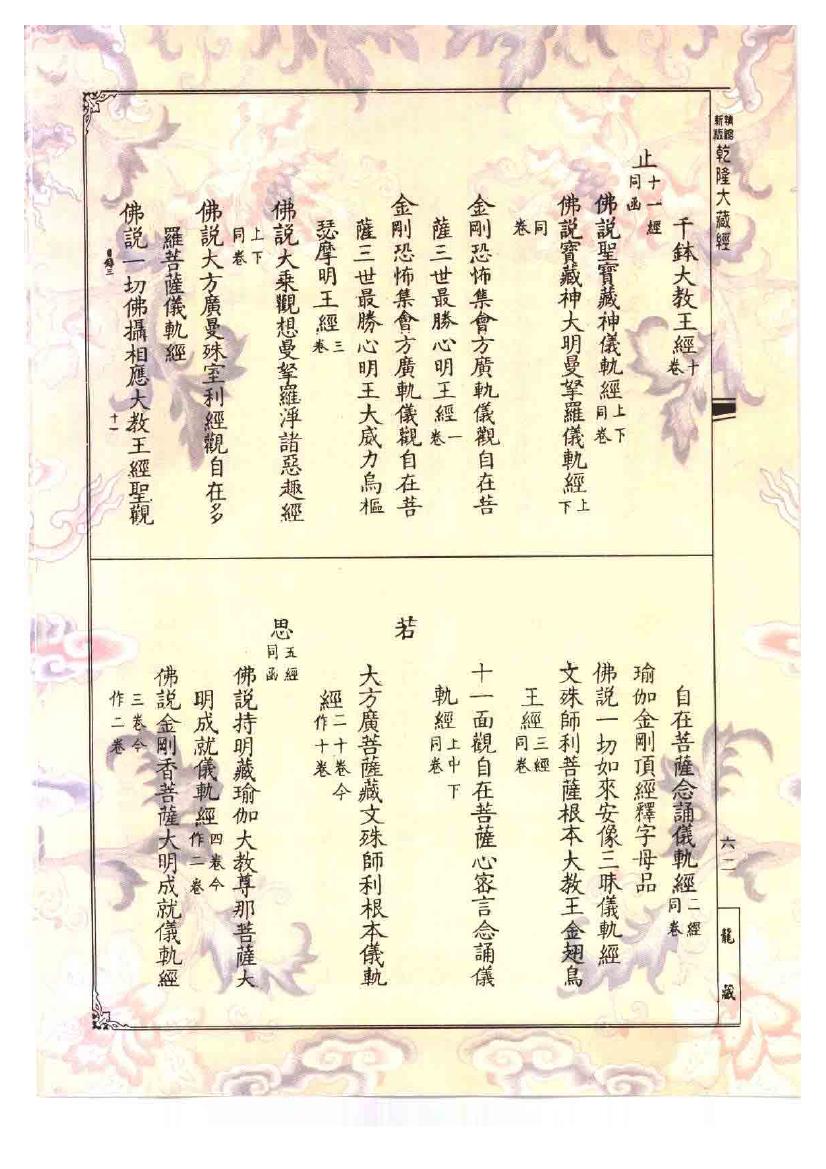 精縮新版 乾隆大藏經
千鉢大教王經 十卷
止 十一經同函
佛説聖寶藏神儀軌經 上下同卷
佛説寶藏神大明曼拏羅儀軌經 上下
同卷
金剛恐怖集會方廣軌儀觀自在菩
薩三世最勝心明王經 一卷
金剛恐怖集會方廣軌儀觀自在菩
薩三世最勝心明王大威力烏樞
瑟摩明王經 三卷
佛説大乘觀想曼拏羅淨諸惡趣經
上下同卷
佛説大方廣曼殊室利經觀自在多
羅菩薩儀軌經
佛説一切佛攝相應大教王經聖觀
目錄三
十一
自在菩薩念誦儀軌經 二經同卷
瑜伽金剛頂經釋字母品
佛説一切如來安像三昧儀軌經
文殊師利菩薩根本大教王金翅鳥
王經 三經同卷
十一面觀自在菩薩心密言念誦儀
軌經 上中下同卷
若
大方廣菩薩藏文殊師利根本儀軌
經 二十卷今作十卷
思 五經同函
佛説持明藏瑜伽大教尊那菩薩大
明成就儀軌經 四卷今作二卷
佛説金剛香菩薩大明成就儀軌經
三卷今作二卷
六二
龍藏